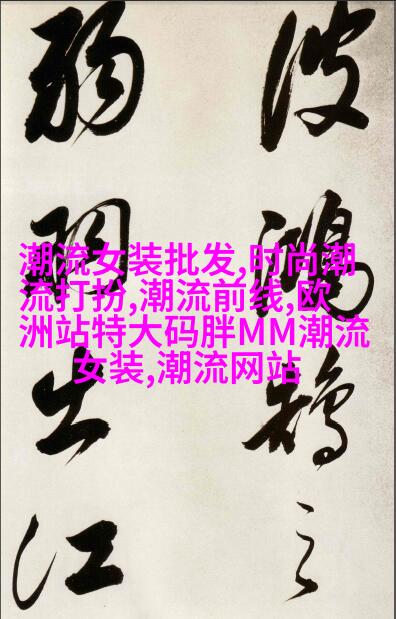 彼鴻鵠之
弱羽出江
潮流女装批发,时尚潮
流打扮,潮流前线,欧
洲站特大码胖MM潮流
女装,潮流网站